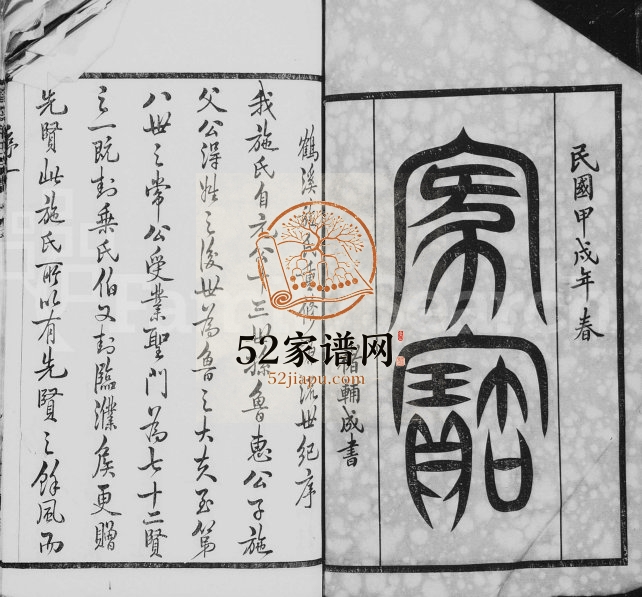 民國甲戌年春
家寶
輔成書
鶴溪施氏重修流世紀序
我施氏自元公十三世孫魯惠公子施
父公得姓之後世為魯之大夫至第
八世之常公受業聖門為七十二賢
之一既封乘氏伯又封臨濮侯更贈
先賢此施氏所以有先賢之餘風而
序一
52家谱网
52jiapu.com